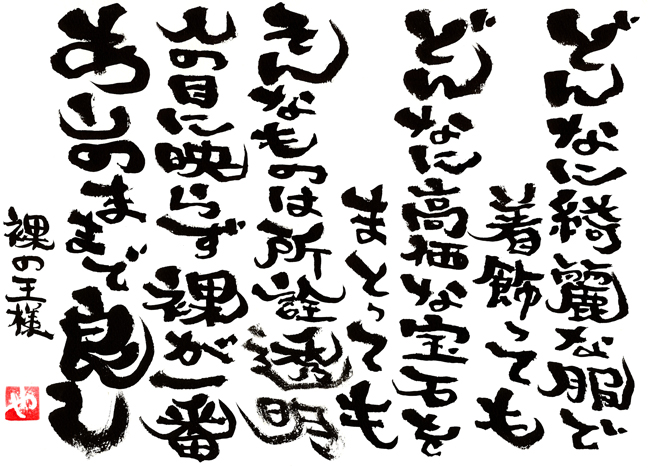 どんなに綺麗な服で
着飾っても
どんなに高価な宝石を
まとっても
そんなものは所詮透明
人の目に映らず裸が一番
ありのままで良し
裸の王様
や